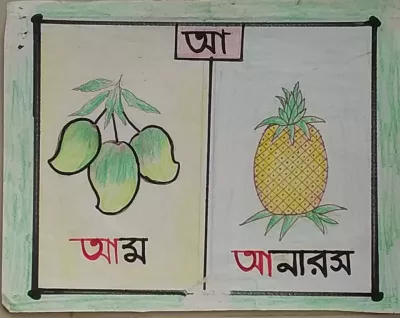 আ
আম
আনারস